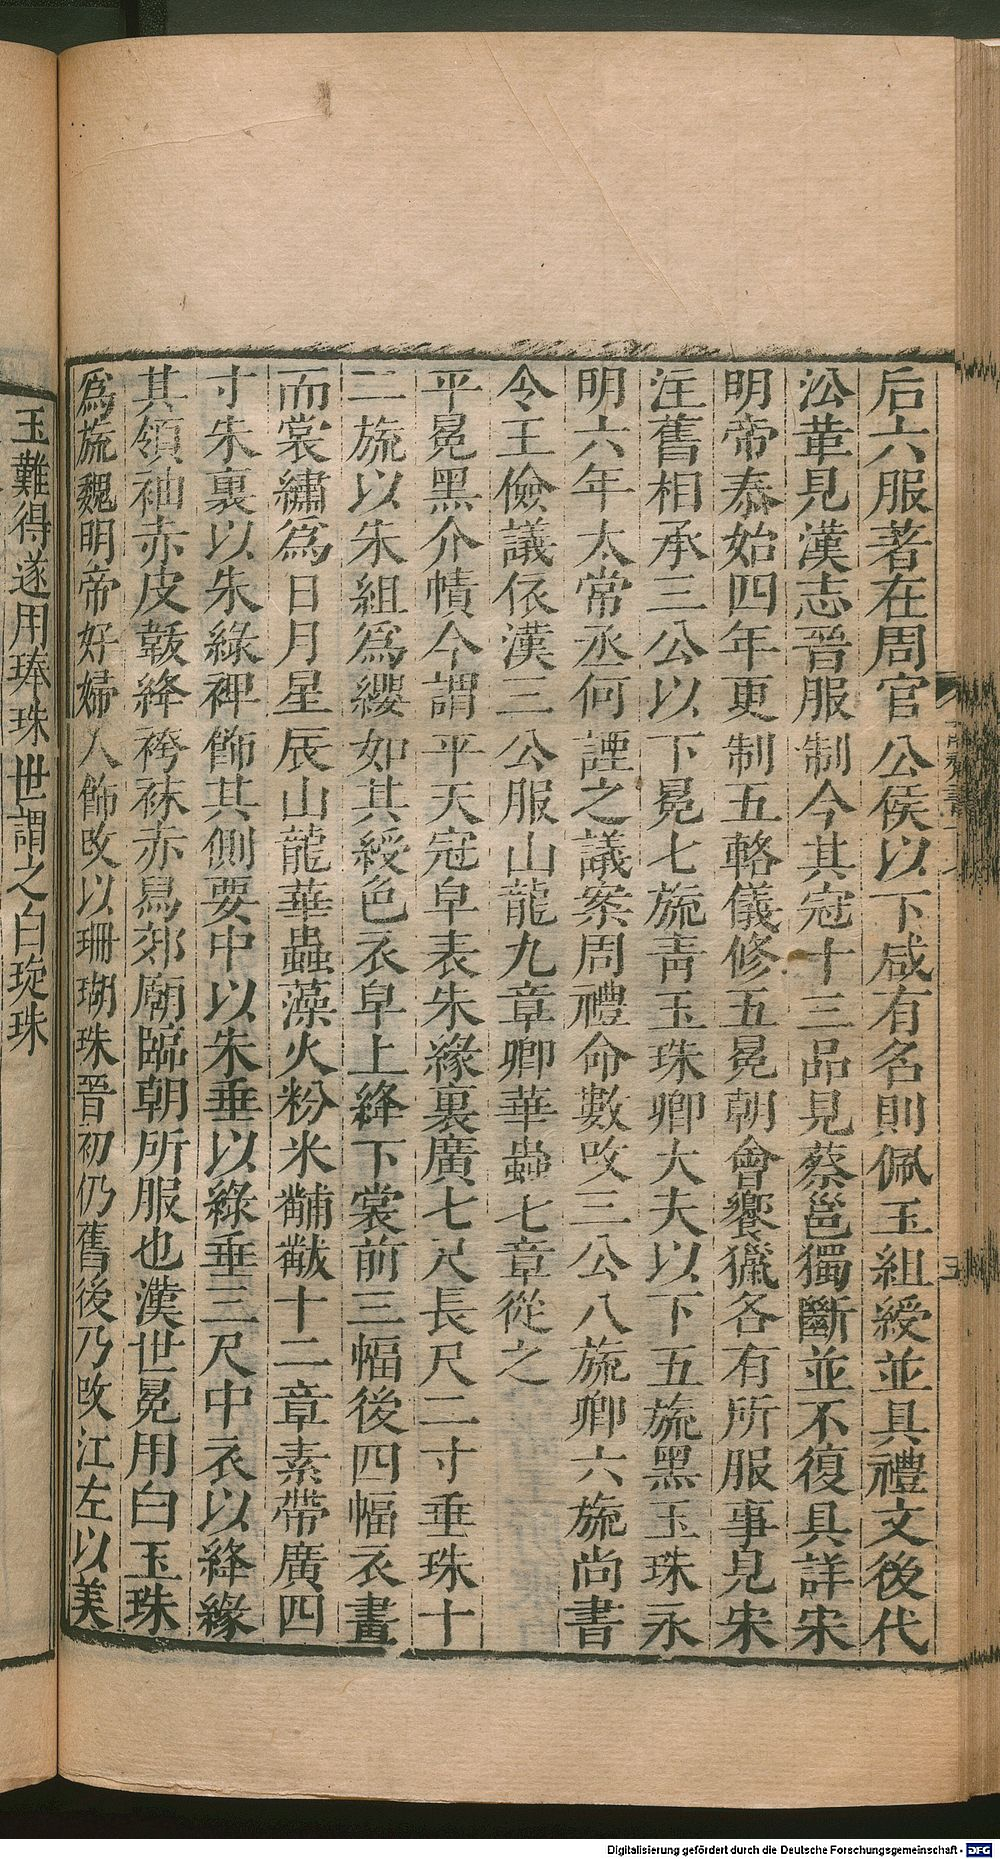 后六服著在周官公侯以下咸有名則佩玉組綬並具禮文後代
㳂革見漢志晉服制令其冠十三品見蔡邕獨斷並不復具詳宋
明帝泰始四年更制五輅儀修五冕朝會饗獵各有所服事見宋
注舊相承三公以下冕七旒青玉珠卿大夫以下五旒黑玉珠永
明六年太常丞何諲之議案周禮命數改三公八旒卿六旒尚書
令王儉議依漢三公服山龍九章卿華蟲七章從之
平冕黑介幘今謂平天冠皁表朱緣裏廣七尺長尺二寸垂珠十
二旒以朱組為纓如其綬色衣皁上絳下裳前三幅後四幅衣畫
而裳繡為日月星辰山龍華蟲藻火粉米黼黻十二章素帶廣四
寸朱裏以朱綠裨飾其側要中以朱垂以綠垂三尺中衣以絳緣
其領袖赤皮韍絳袴袜赤舄郊廟臨朝所服也漢世冕用白玉珠
為旒魏明帝好婦人飾改以珊瑚珠晉初仍舊後乃改江左以美
玉難得遂用琫珠世謂之白琁珠
五
Digitalisierung gefördert durch die Deutsche Forschungsgemeinschaft - DFG